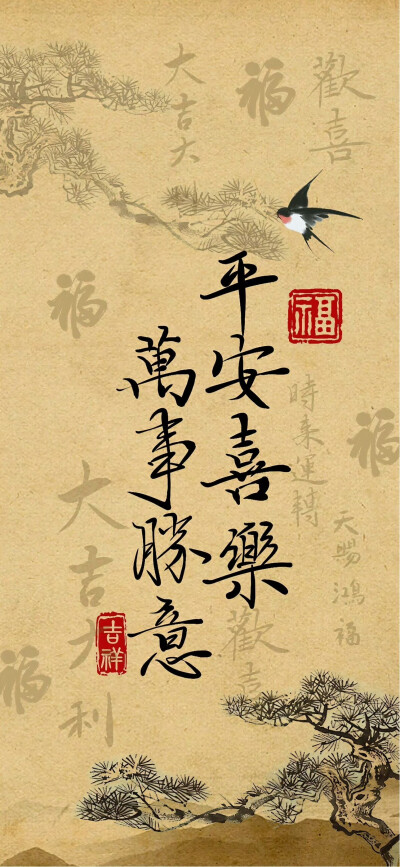 平安喜樂
萬事勝意
福
吉祥
歡喜
福
大吉大
福
時來運轉
福
天賜鴻福
大吉大利
歡喜
福